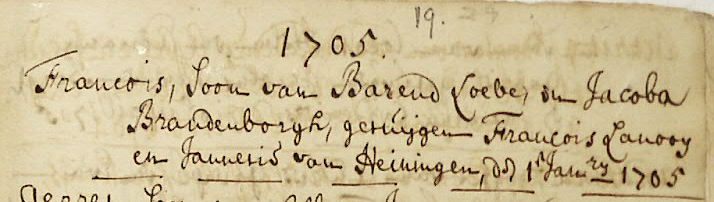 19.
1705.
Francois, Soon van Barend Loebe, en Jacoba
Brandenborgh, getuijgen François Lanooy
en Jannetis van Heiningen, dd 1 Janry 1705